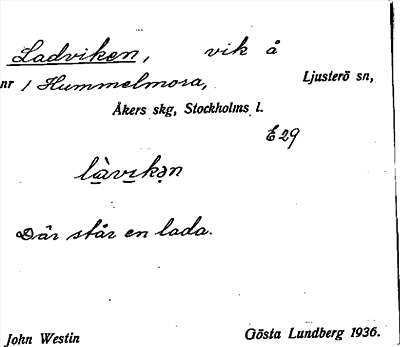 Ladviken, vik å
nr 1 Hummelmora, Ljusterö sn,
Åkers skg, Stockholms l.
E29
là̱vi̱kə̣n
Där står en lada.
John Westin Gösta Lundberg 1936.